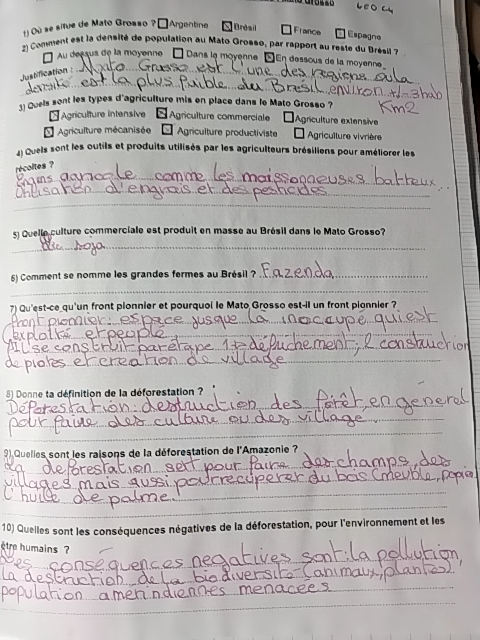 GEO C4
1) Où se situe de Mato Grosso ? Argentine Brésil France Espagne
2) Comment est la densité de population au Mato Grosso, par rapport au reste du Brésil ?
Au dessus de la moyenne Dans la moyenne En dessous de la moyenne
Justification : Mato Grosso est l'une des regions ou la
densité est la plus faible du Bresil environ +/- 3 hab
Km2
3) Quels sont les types d'agriculture mis en place dans le Mato Grosso ?
Agriculture intensive Agriculture commerciale Agriculture extensive
Agriculture mécanisée Agriculture productiviste Agriculture vivrière
4) Quels sont les outils et produits utilisés par les agriculteurs brésiliens pour améliorer les
récoltes ?
Engins agricole comme les maissonneuses batteux...
Utilisation d'engrais et des pesticides
5) Quelle culture commerciale est produit en masse au Brésil dans le Mato Grosso?
soja
6) Comment se nomme les grandes fermes au Brésil ? Fazenda
7) Qu'est-ce qu'un front pionnier et pourquoi le Mato Grosso est-il un front pionnier ?
Front pionnier : espace jusque la inoccupé qui est
exploité et peuplé
Il se construit par étape 1 défuchement, 2 construction
de pistes et creation de village
8) Donne ta définition de la déforestation ?
Déforestation : destruction des forêt, en general
pour faire des culture ou des village
9) Quelles sont les raisons de la déforestation de l'Amazonie ?
La deforestation sert pour faire des champs, des
villages mais aussi pour recuperer du bois (meuble, papier)
l'huile de palme.
10) Quelles sont les conséquences négatives de la déforestation, pour l'environnement et les
être humains ?
Les conséquences negatives sont : la pollution,
la destruction de la biodiversite (animaux, plantes),
population amerindiennes menacees